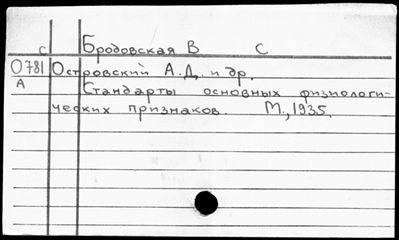 с Бродовская В С
0781 Островский А.Д. и др.
А Стандарты основных физиологи-
ческих признаков. М., 1935.